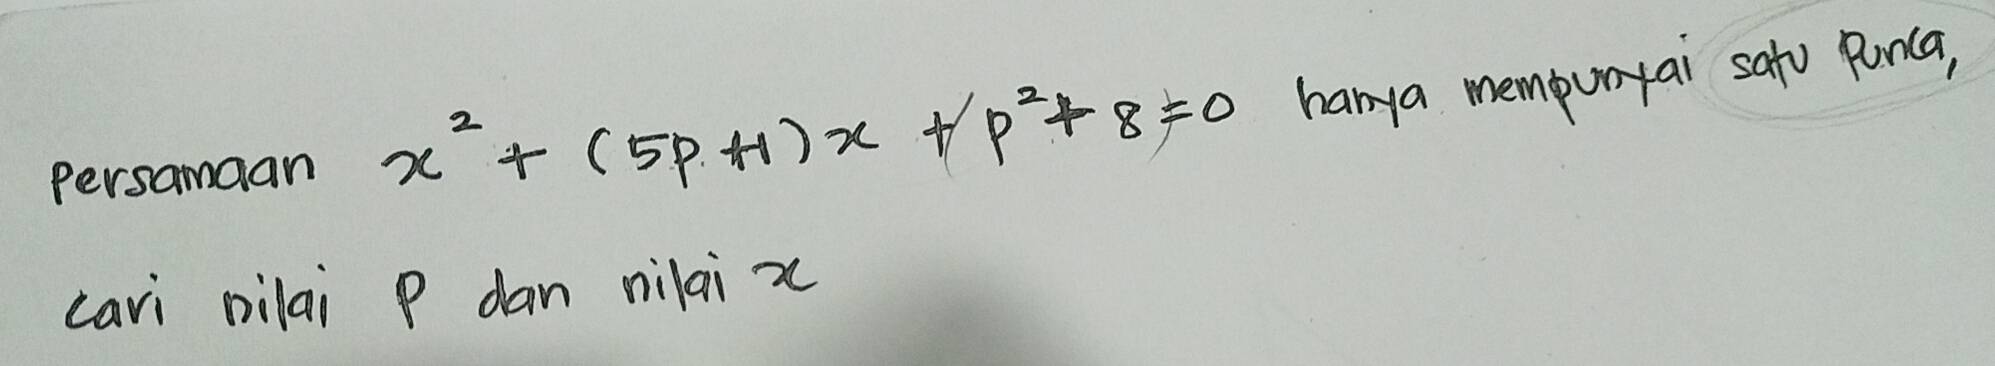 Persamaan x² + (5p+1)x + p² + 8 = 0 hanya mempunyai satu punca,
cari nilai p dan nilai x